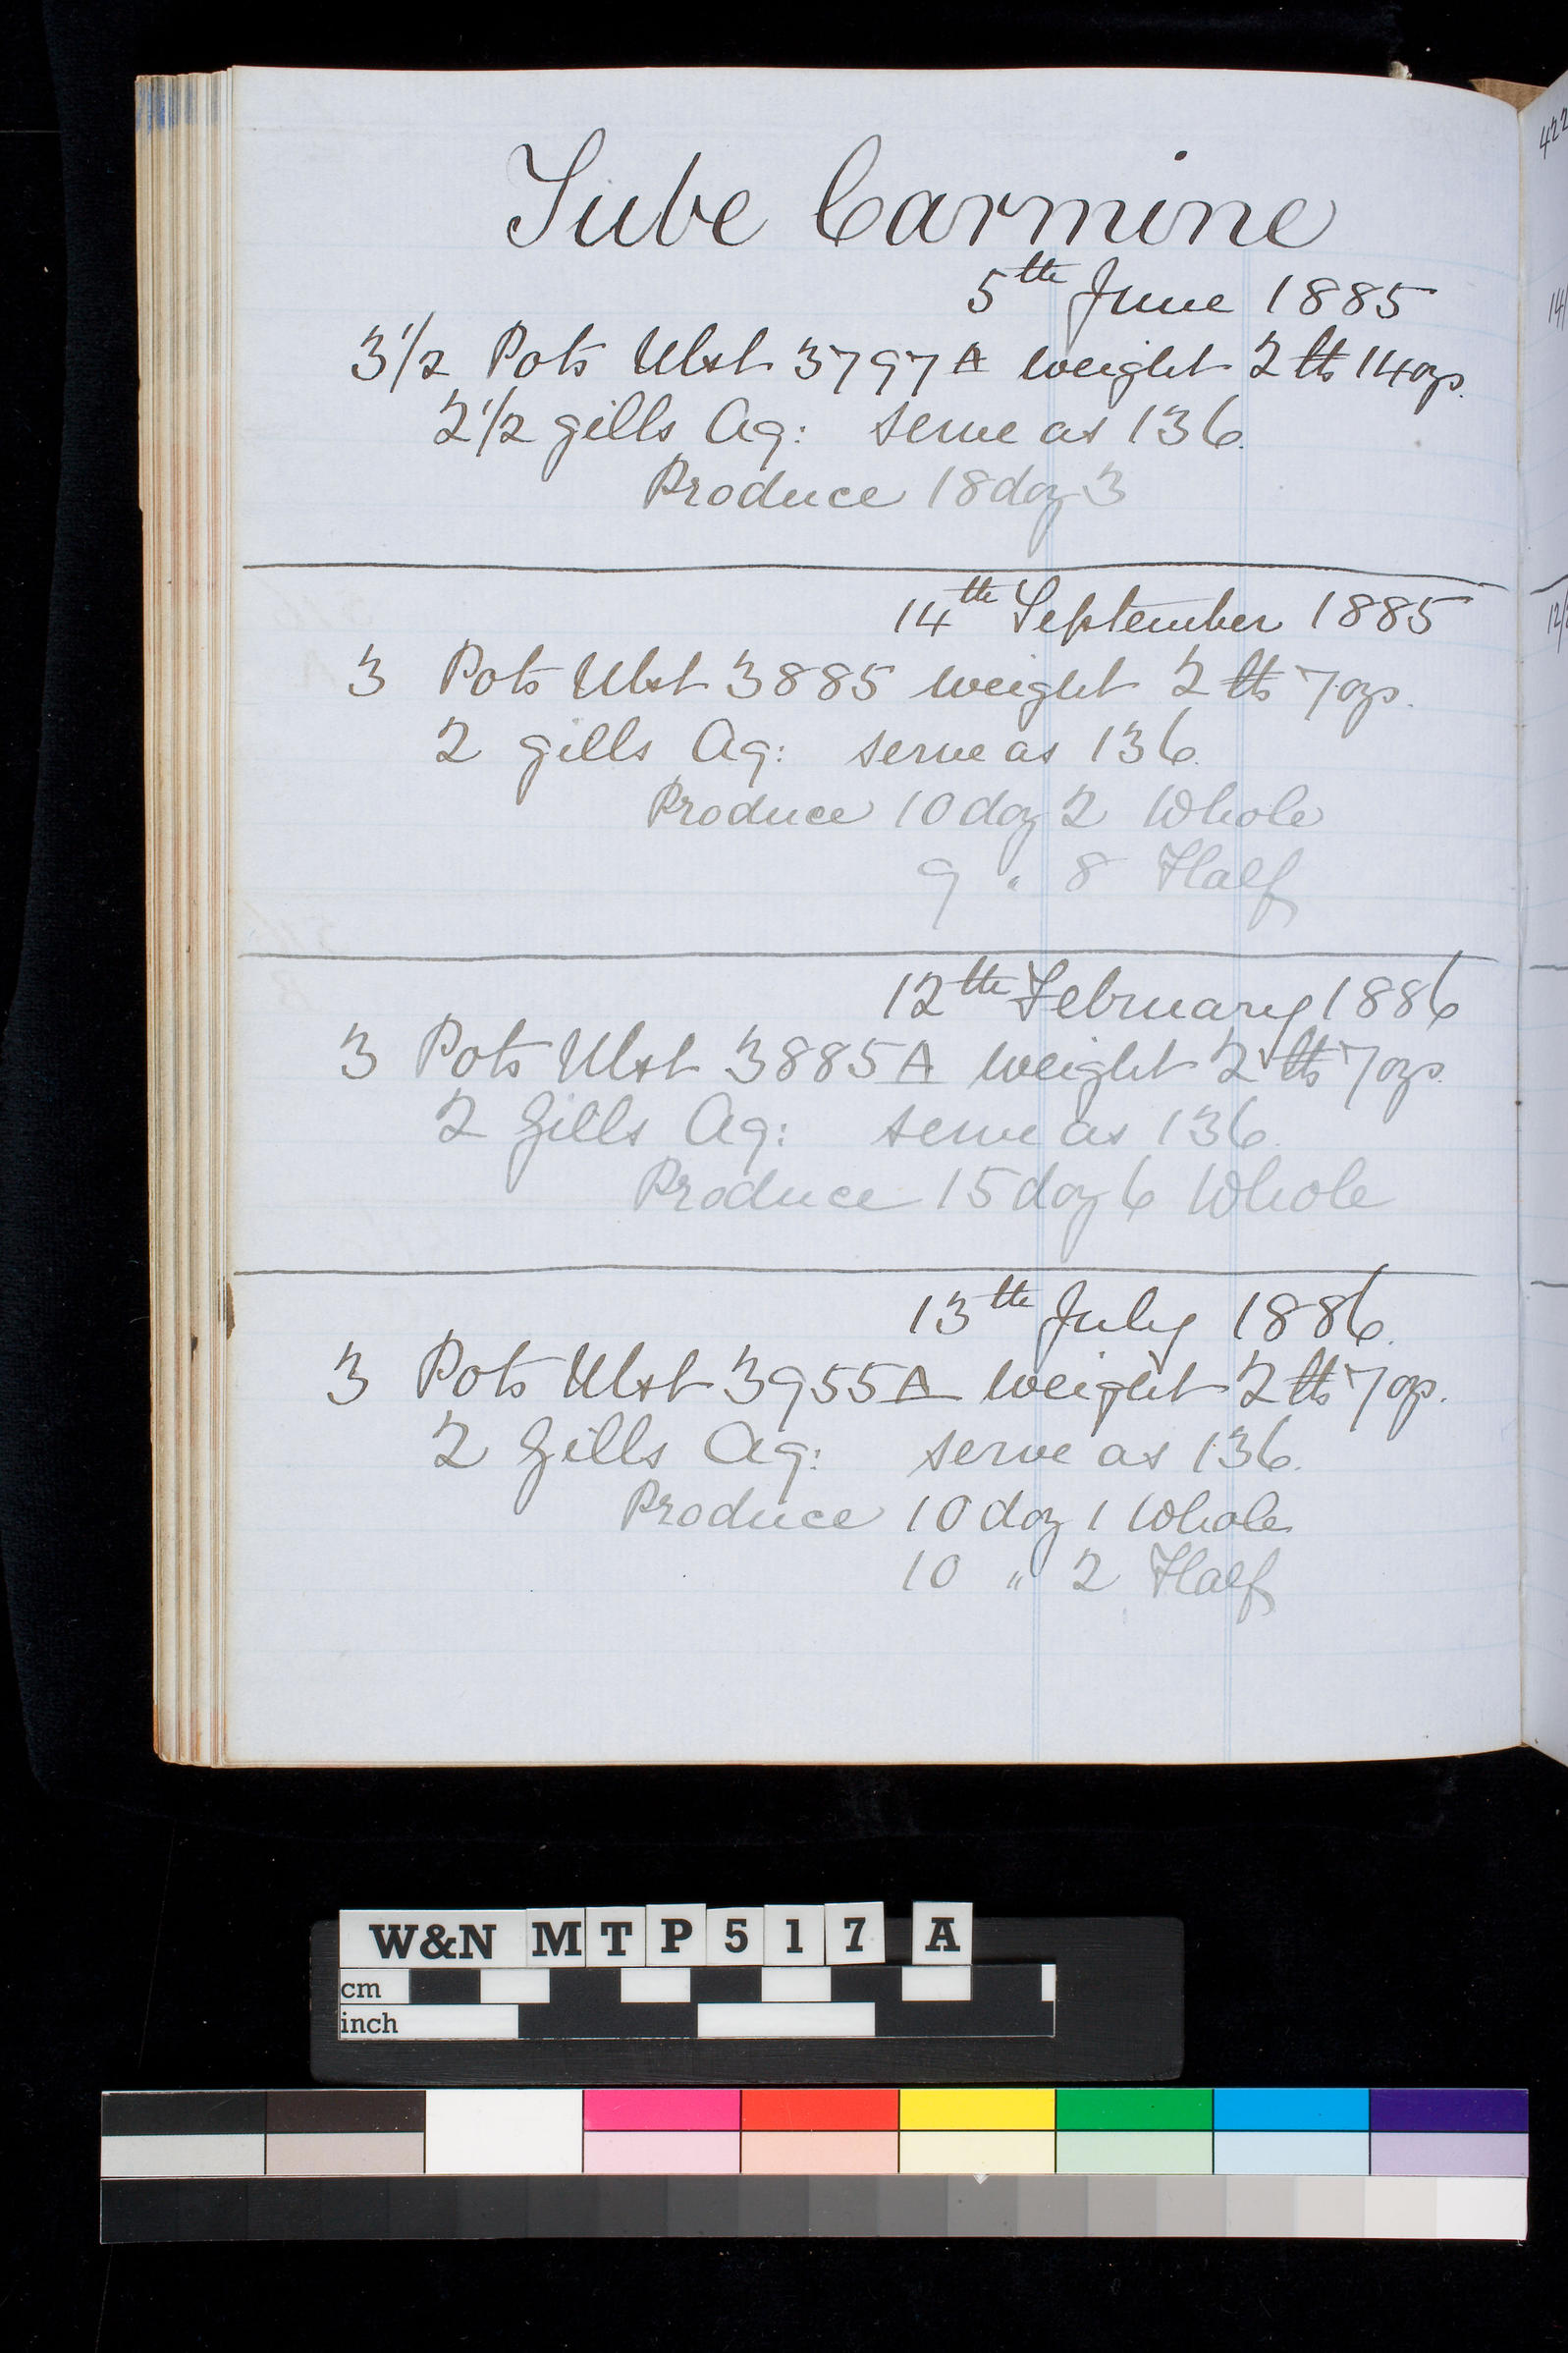 Tube Carmine
5th June 1885
3 1/2 Pots Ulst 3797A weight 2 lb 14 ozs.
2 1/2 gills Aq: serve as 136.
Produce 18 doz 3
14th September 1885
3 Pots Ulst 3885 weight 2 lb 7 ozs.
2 gills Aq: serve as 136.
Produce 10 doz 2 Whole
9 " 8 Half
12th February 1886
3 Pots Ulst 3885A weight 2 lb 7 ozs.
2 Gills Aq: serve as 136.
Produce 15 doz 6 Whole
13th July 1886.
3 Pots Ulst 3955A weight 2 lb 7 ozs.
2 Gills Aq: serve as 136.
Produce 10 doz 1 Whole
10 " 2 Half
W&N MTP517 A
cm
inch